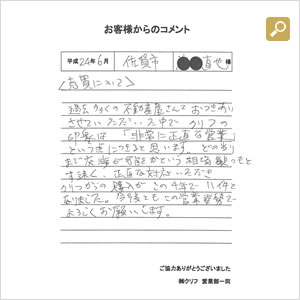 お客様からのコメント
平成24年6月 佐賀市 ●●直也様
〈売買について〉
過去多くの不動産屋さんとおつきあい
させていただいた中でクリフの
印象は「非常に正直な営業」
といつきにつきると思います。どのあたり
まで交渉が可能かという相談機つも
素早く！正直な対応いただき
クリフからの購入がこの4年で11件と
なりました。今後ともこの営業姿勢で
よろしくお願いします。
ご協力ありがとうございました
㈱クリフ 営業部一同